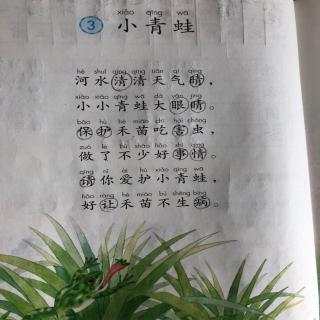 xiǎo qīng wā
3 小青蛙
hé shuǐ qīng qīng tiān qì qíng
河水清清天气晴,
xiǎo xiǎo qīng wā dà yǎn jīng
小小青蛙大眼睛。
bǎo hù hé miáo chī hài chóng
保护禾苗吃害虫,
zuò le bù shǎo hǎo shì qing
做了不少好事情。
qǐng nǐ ài hù xiǎo qīng wā
请你爱护小青蛙,
hǎo ràng hé miáo bù shēng bìng
好让禾苗不生病。